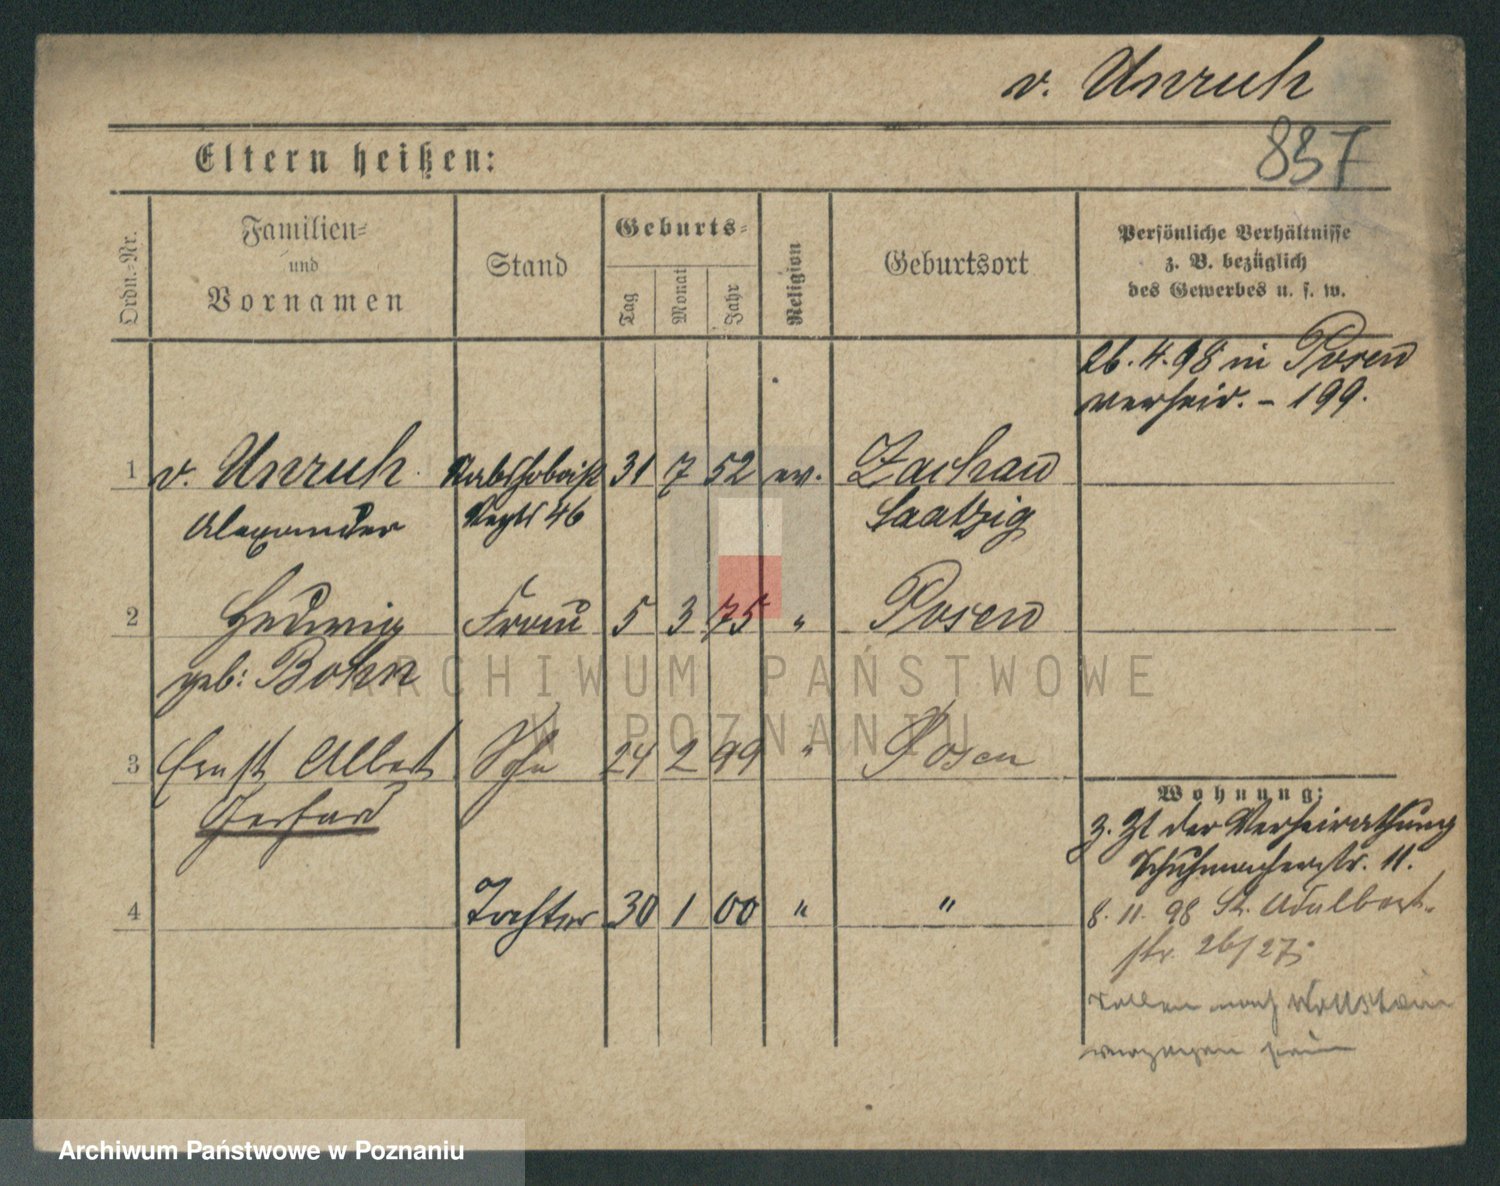 v. Unruh
837
Eltern heißen:
Ordn.-Nr.
Familien-
und
Vornamen
Stand
Geburts-
Tag
Monat
Jahr
Religion
Geburtsort
Persönliche Verhältnisse
z. B. bezüglich
des Gewerbes u. s. w.
26.4.98 in Posen
verheir. - 199.
1 v. Unruh Stabshoboist 31 7 52 ev. Zachau
Alexander Regts 46 Saatzig
2 Hedwig Frau 5 3 75 " Posen
geb: Bohn
3 Ernst Albert Sohn 24 2 99 " Posen
Gerhard
Wohnung:
z. Zt der Verheirathung
Schuhmacherstr. 11.
4 Tochter 30 1 00 " "
8. 11. 98 St. Adalbert-
str. 26/27;
sollen nach Wollstein
verzogen sein
ARCHIWUM PAŃSTWOWE
W POZNANIU
Archiwum Państwowe w Poznaniu